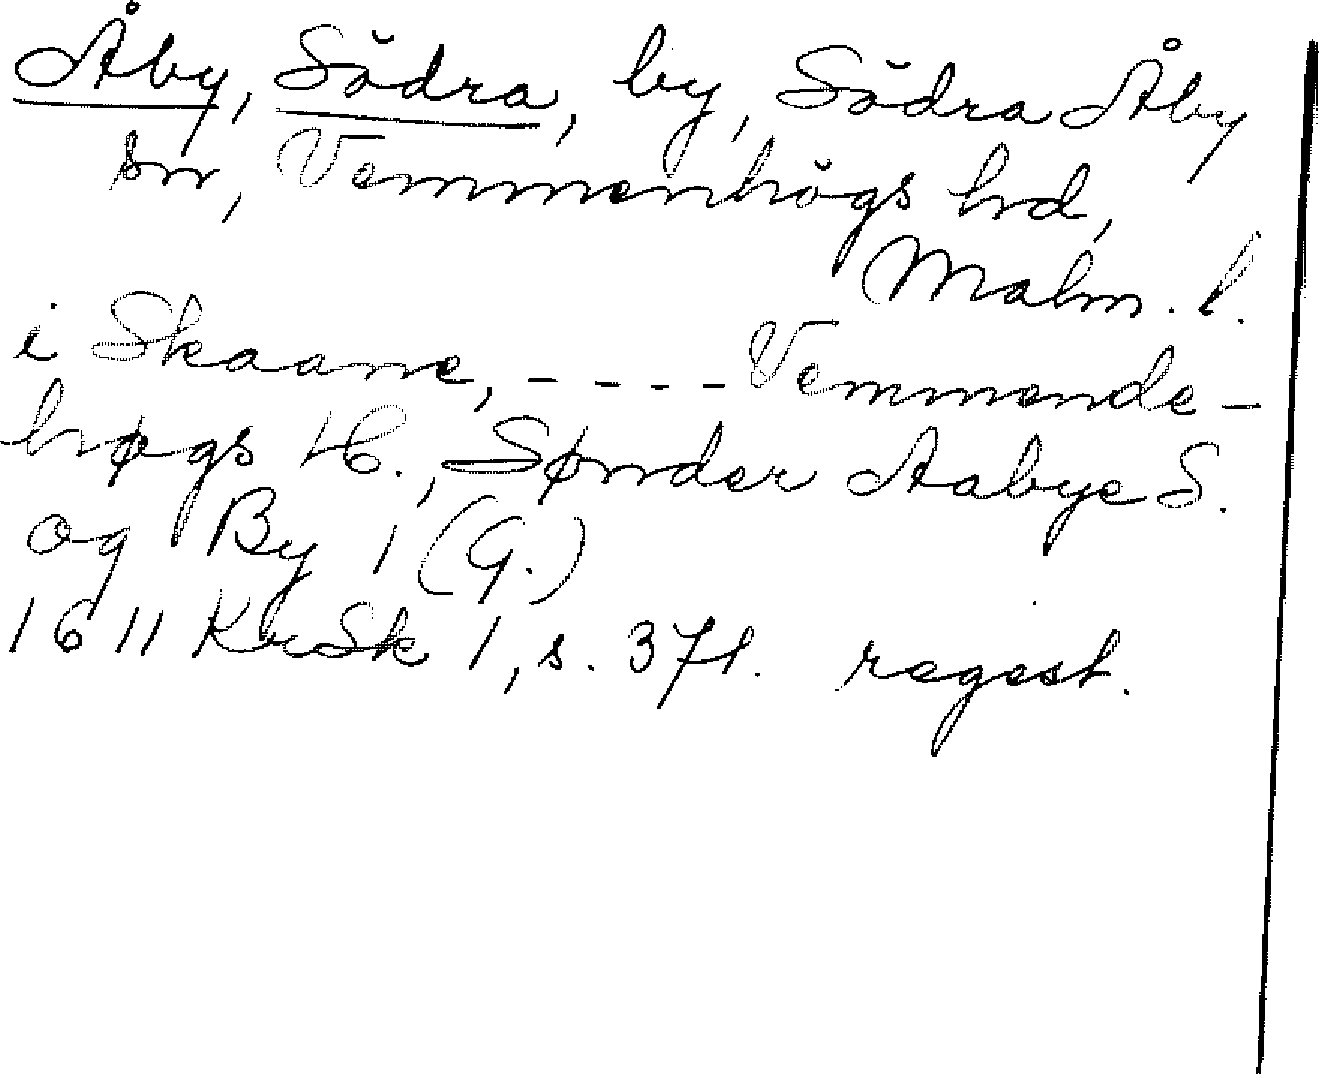 Åby, Södra, by, Södra Åby
sn, Vemmenhögs hrd,
Malm. l.
i Skaane, - - - - Vemmende-
høgs H., Sønder Aabye S.
og By 1 (G.)
1611 KrSk 1, s. 371. regest.